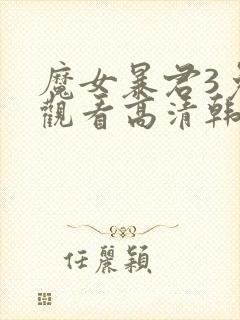 魔女暴君3免
觀看高清韓
任麗穎